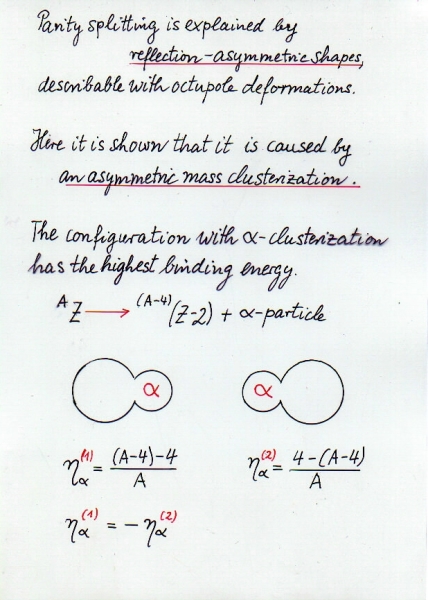 Parity splitting is explained by
reflection-asymmetric shapes,
describable with octupole deformations.
Here it is shown that it is caused by
an asymmetric mass clusterization.
The configuration with α-clusterization
has the highest binding energy.
ᴬZ → ⁽ᴬ⁻⁴⁾(Z-2) + α-particle
α α
η_α^(1) = ((A-4)-4)/A η_α^(2) = (4-(A-4))/A
η_α^(1) = - η_α^(2)